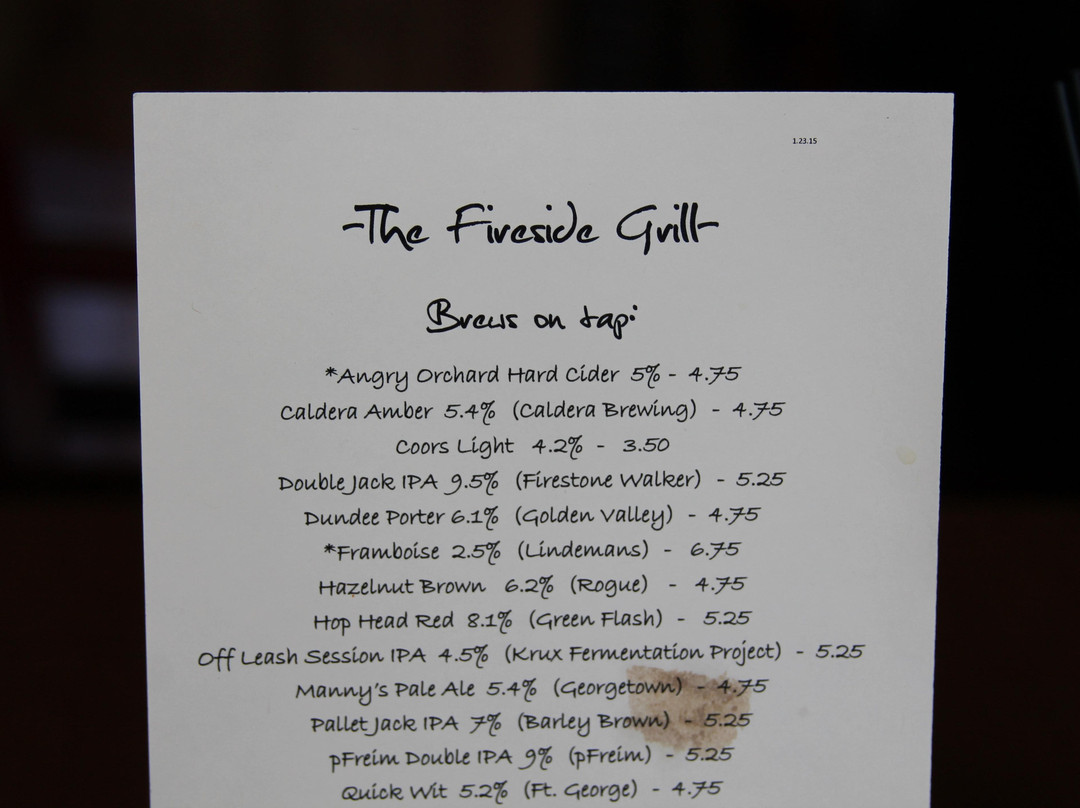 1.23.15
-The Fireside Grill-
Brews on tap:
*Angry Orchard Hard Cider 5% - 4.75
Caldera Amber 5.4% (Caldera Brewing) - 4.75
Coors Light 4.2% - 3.50
Double Jack IPA 9.5% (Firestone Walker) - 5.25
Dundee Porter 6.1% (Golden Valley) - 4.75
*Framboise 2.5% (Lindemans) - 6.75
Hazelnut Brown 6.2% (Rogue) - 4.75
Hop Head Red 8.1% (Green Flash) - 5.25
Off Leash Session IPA 4.5% (Krux Fermentation Project) - 5.25
Manny's Pale Ale 5.4% (Georgetown) - 4.75
Pallet Jack IPA 7% (Barley Brown) - 5.25
pFreim Double IPA 9% (pFreim) - 5.25
Quick Wit 5.2% (Ft. George) - 4.75